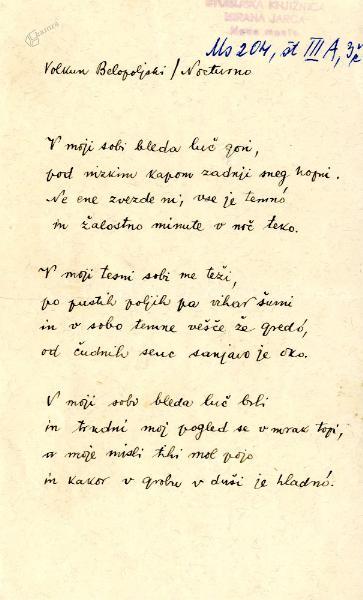 Kamra
ŠTUDIJSKA KNJIŽNICA
MIRANA JARCA
Novo mesto
Ms 204, št III A, 3/c
Volkun Belopoljski / Nocturno
V moji sobi bleda luč gori,
pod nizkim kapom zadnji sneg kopni.
Ne ene zvezde ni, vse je temnó
in žalostno minute v noč tekó.
V moji tesni sobi me teži,
po pustih poljih pa vihar šumi
in v sobo temne vešče že gredó,
od čudnih senc sanjavo je oko.
V moji sobi bleda luč brli
in trudni moj pogled se v mrak topi,
a moje misli tihi mol pojo
in kakor v grobu v duši je hladnó.